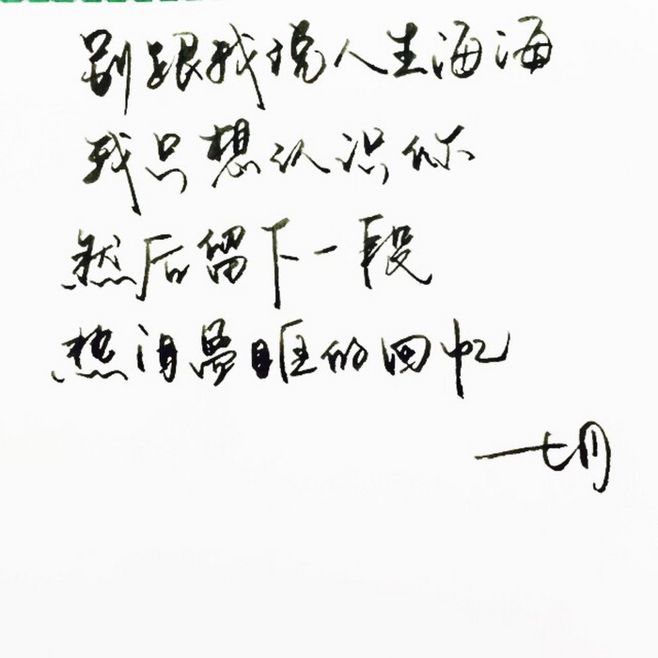 别跟我说人生海海
我只想认识你
然后留下一段
热泪盈眶的回忆
一切